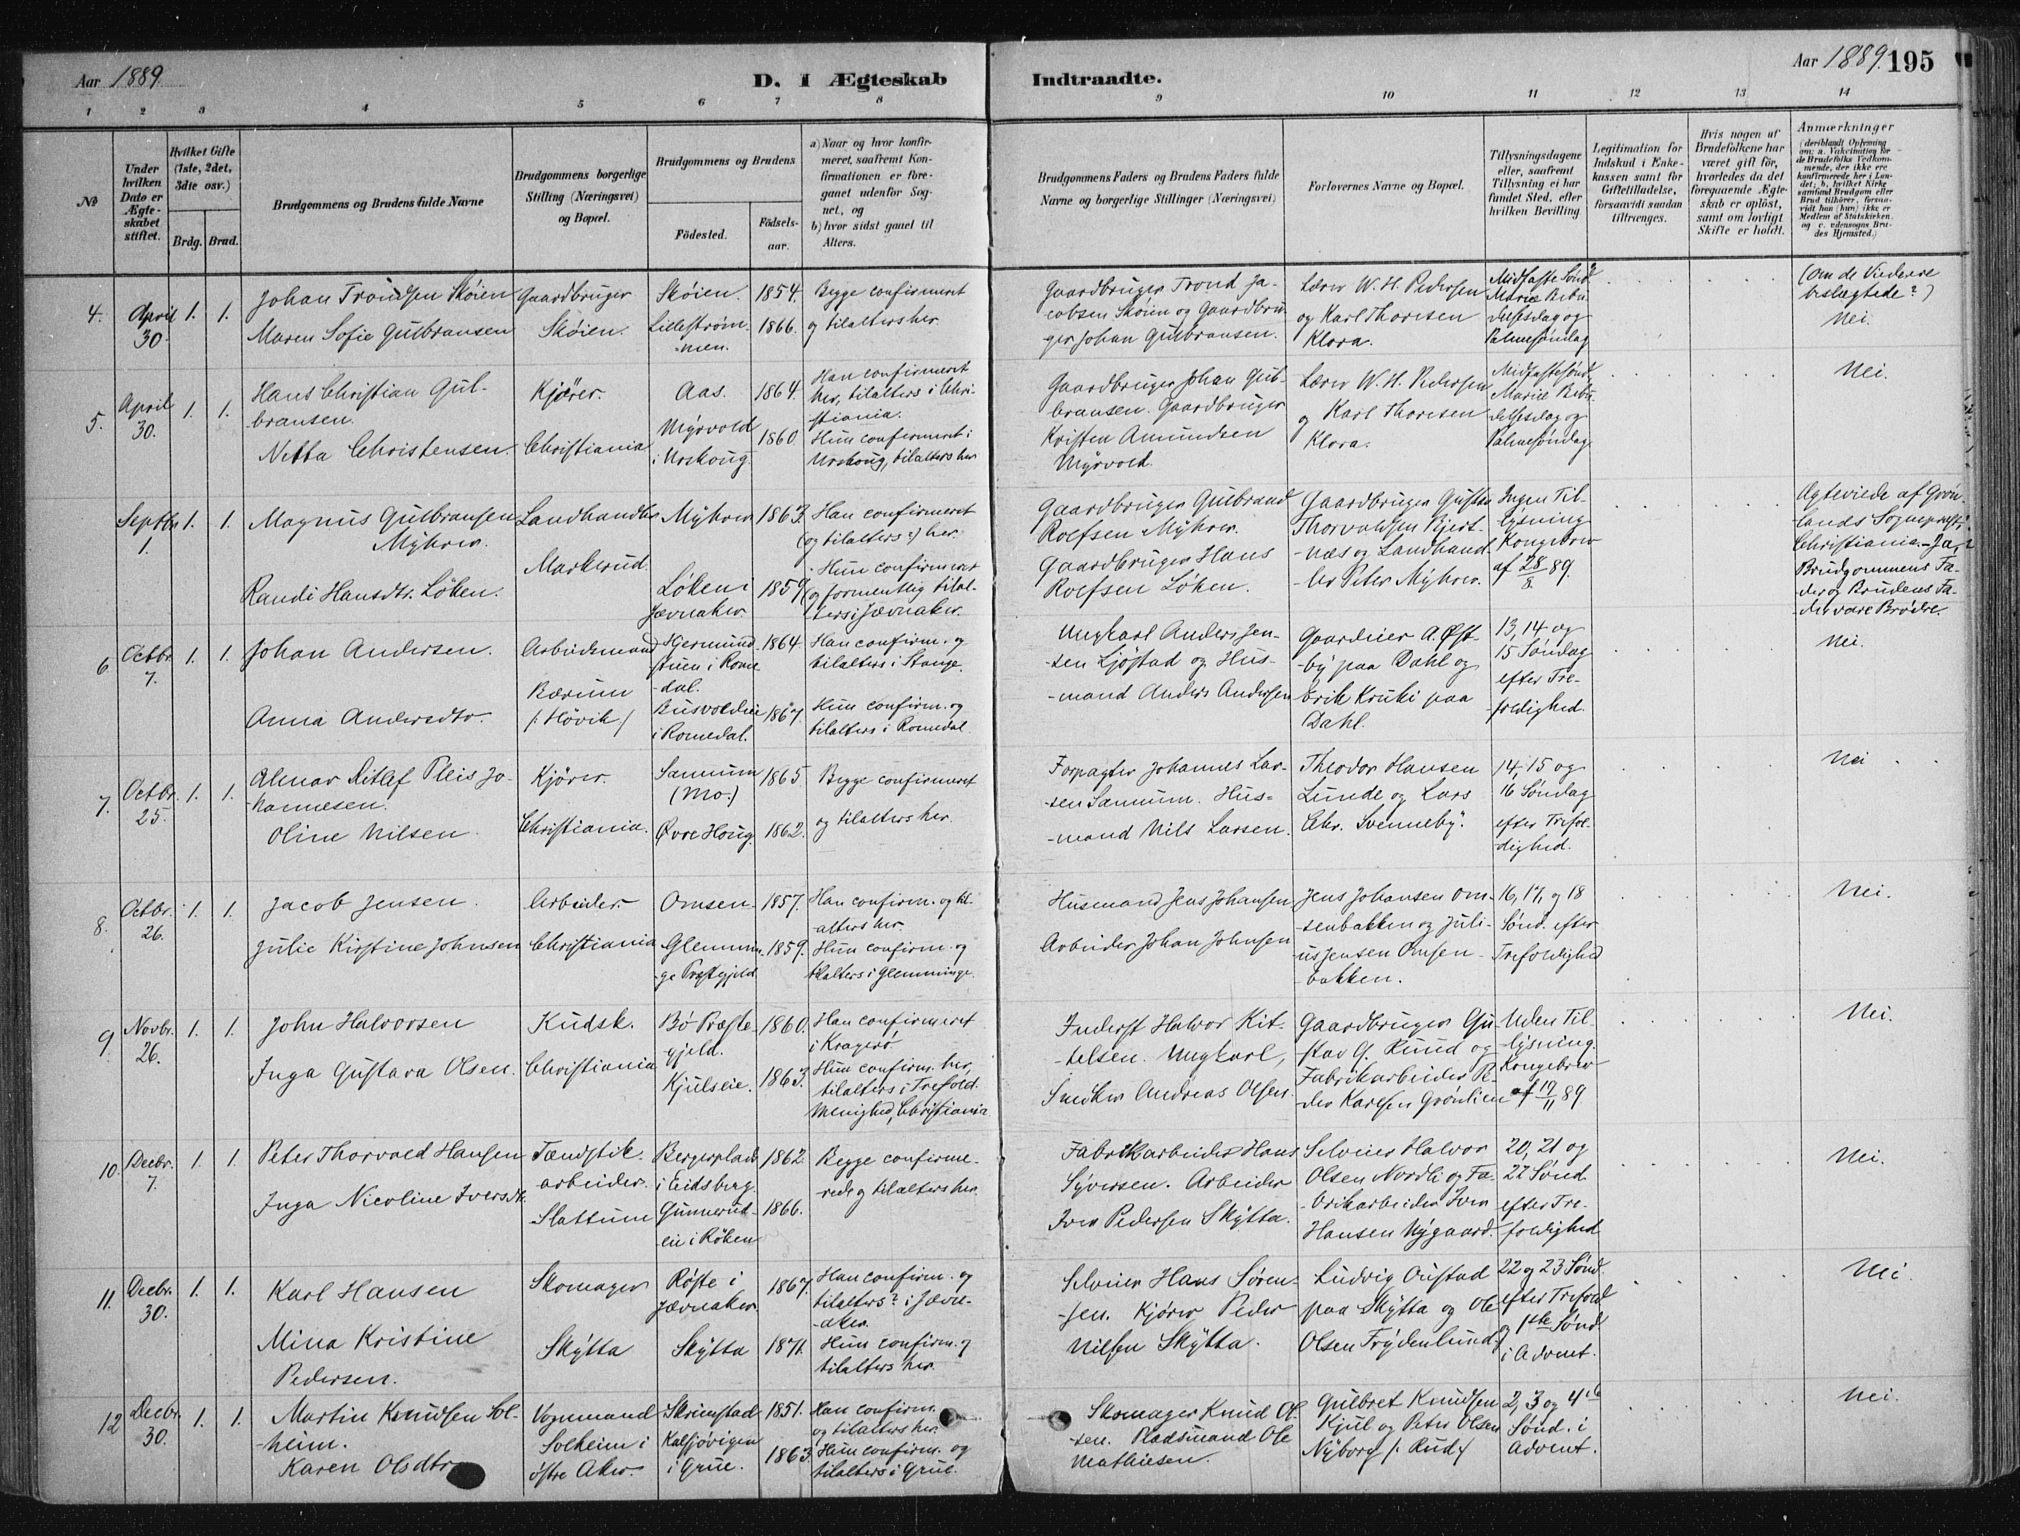 Aar 1889.
D. I Ægteskab
Indtraadte.
Aar 1889. 195
1 2 3 4 5 6 7 8 9 10 11 12 13 14
No
Under hvilken Dato er Ægteskabet stiftet.
Hvilket Gifte (1ste, 2det, 3dte osv.)
Brdg. Brud.
Brudgommens og Brudens fulde Navne
Brudgommens borgerlige Stilling (Næringsvei) og Bopæl.
Brudgommens og Brudens
Fødested.
Fødselsaar.
a) Naar og hvor konfirmeret, saafremt Konfirmationen er foregaaet udenfor Sognet, og
b) hvor sidst gaaet til Alters.
Brudgommens Faders og Brudens Faders fulde Navne og borgerlige Stillinger (Næringsvei)
Forlovernes Navne og Bopæl.
Tillysningsdagene eller, saafremt Tillysning ei har fundet Sted, efter hvilken Bevilling
Legitimation for Indskud i Enkekassen samt for Giftetilladelse, forsaavidt saadan tiltrænges.
Hvis nogen af Brudefolkene har været gift før, hvorledes da det foregaaende Ægteskab er opløst, samt om lovligt Skifte er holdt.
Anmærkninger
(deriblandt Oplysning om: a. Vaccination for de Brudefolks Vedkommende, der ikke ere konfirmerede her i Landet; b. hvilket Kirkesamfund Brudgom eller Brud tilhører, forsaavidt han (hun) ikke er Medlem af Statskirken, og c. udensogns Brudes Hjemsted.)
4. April 30. 1. 1.
Johan Trondsen Skøien
Maren Sofie Gulbransen
Gaardbruger
Skøien.
Skøien. 1854.
Lillestrømmen. 1866.
Begge confirmeret
og tilalters her.
Gaardbruger Trond Ja-
cobsen Skøien og Gaardbru-
ger Johan Gulbransen.
Lærer W. H. Pedersen
og Karl Thoresen
Klora.
Midfaste Sønd.
Mariæ Bebu-
delsesdag og
Palmesøndag
(om de Viedere
beslægtede?)
Nei.
5. April 30. 1. 1.
Hans Christian Gul-
bransen.
Netta Christensen.
Kjører.
Christiania
Aas. 1864.
Myrvold
i Urskoug. 1860.
Han confirmeret
her, tilalters i Chri-
stiania.
Hun confirmeret i
Urskoug, tilalters her
Gaardbruger Johan Gul-
bransen. Gaardbruger
Kristen Amundsen
Myrvold.
Lærer W. H. Pedersen
og Karl Thoresen
Klora.
Midfastesønd.
Mariæ Bebu-
delsesdag og
Palmesøndag
Nei.
Septbr. 1. 1. 1.
Magnus Gulbransen
Myhrer.
Randi Hansdtr. Løken.
Landhandler
Markerud.
Myhrer 1863.
Løken i
Jævnaker. 1859.
Han confirmeret
(og tilalters?) her.
Hun confirmeret
og formentlig tilal-
ters i Jævnaker.
Gaardbruger Gulbrand
Rolfsen Myhrer.
Gaardbruger Hans
Rolfsen Løken.
Gaardbruger Gustav
Thorvaldsen Kjert-
næs og Landhand-
ler Peter Myhrer.
Ingen Til-
lysning
Kongebrev
af 28/8 89.
Ægteviede af Grøn-
lands Sognepræst,
Christiania. - Ja,
Brudgommens Fa-
der og Brudens Fa-
der vare Brødre.
6. Octbr. 7. 1. 1.
Johan Andersen.
Anna Andersdtr.
Arbeidsmand
Bærum
/: Høvik :/
Hjermund-
stuen i Rome-
dal. 1864.
Busvoldeie
i Romedal. 1867.
Han confirm. og
tilalters i Stange.
Hun confirm. og
tilalters i Romedal.
Ungkarl Anders Jen-
sen Ljøstad og Hus-
mand Anders Andersen
Gaardeier A. Øst-
by paa Dahl og
Erik Kruki paa
Dahl.
13, 14 og
15 Søndag
efter Tre-
foldighed.
Nei.
7. Octbr. 25. 1. 1.
Almar Ditlef Pleis Jo-
hannesen.
Oline Nilsen.
Kjører.
Christiania.
Sannum
(Mo.) 1865
Øvre Houg. 1862.
Begge confirmeret
og tilalters her.
Forpagter Johannes Lar-
sen Sannum. Hus-
mand Nils Larsen.
Theodor Hansen
Lunde og Lars
Chr. Svenneby.
14, 15 og
16 Søndag
efter Trefol-
dighed.
Nei
8. Octbr. 26. 1. 1.
Jacob Jensen.
Julie Kirstine Johnsen
Arbeider.
Christiania
Omsen. 1857.
Glemmin-
ge Præstegjeld 1859.
Han confirm. og til-
alters her.
Hun confirm. og
tilalters i Glemminge.
Husmand Jens Johansen
Arbeider Johan Johnsen
Jens Johansen Om-
senbakken og Juli-
us Jensen Omsen-
bakken.
16, 17, og 18
Sønd. efter
Trefoldighed
Nei.
9. Novbr. 26. 1. 1.
John Halvorsen
Inga Gustava Olsen.
Kudsk.
Christiania
Bø Præste-
gjeld. 1860.
Kjulseie. 1863.
Han confirmeret
i Kragerø.
Hun confirm. her,
tilalters i Trefold.
Menighed, Christiania
Inderst Halvor Kit-
telsen. Ungkarl,
Snedker Andreas Olsen.
Gaardbruger Gu-
stav G. Ruud og
Fabrikarbeider Pe-
der Karlsen Grønlien
Uden Til-
lysning.
Kongebrev
af 19/11 89
Nei.
10. Decbr. 7. 1. 1.
Peter Thorvald Hansen
Inga Nicoline Iversdtr.
Tændstik-
arbeider.
Slattum
Bergerplads
i Eidsberg 1862
Gunnerud-
eie i Røken 1866.
Begge confirme-
rede og tilalters her.
Fabrikarbeider Hans
Syversen. Arbeider
Iver Pedersen Skytta.
Selveier Halvor
Olsen Nordli og Fa-
brikarbeider Iver
Hansen Nygaard.
20, 21 og
22 Sønd.
efter Tre-
foldighed
Nei.
11. Decbr. 30. 1. 1.
Karl Hansen
Mina Kristine
Pedersen.
Skomager
Skytta
Røste i
Jævnaker. 1867.
Skytta 1871.
Han confirm. og
tilalters? i Jævn-
aker.
Hun confirm. og
tilalters her.
Selveier Hans Søren-
sen. Kjører Peder
Nilsen Skytta.
Ludvig Oustad
paa Skytta og Ole
Olsen Frydenlund.
22 og 23 Sønd.
efter Trefold.
og 1ste Sønd.
i Advent.
Nei.
12 Decbr. 30. 1. 1.
Martin Knudsen Sol-
heim.
Karen Olsdtr.
Vognmand
Solheim i
østre Aker.
Skrimstad 1851.
Kalsjøvigen
i Grue. 1863.
Han confirm.
og tilalters her.
Hun confirm. og
tilalters i Grue.
Skomager Knud Ol-
sen. Pladsmand Ole
Mathiesen.
Gulbret Knudsen
Kjul og Peter Olsen
Nyborg /: Rud :/
2, 3 og 4de
Sønd. i
Advent.
Nei.